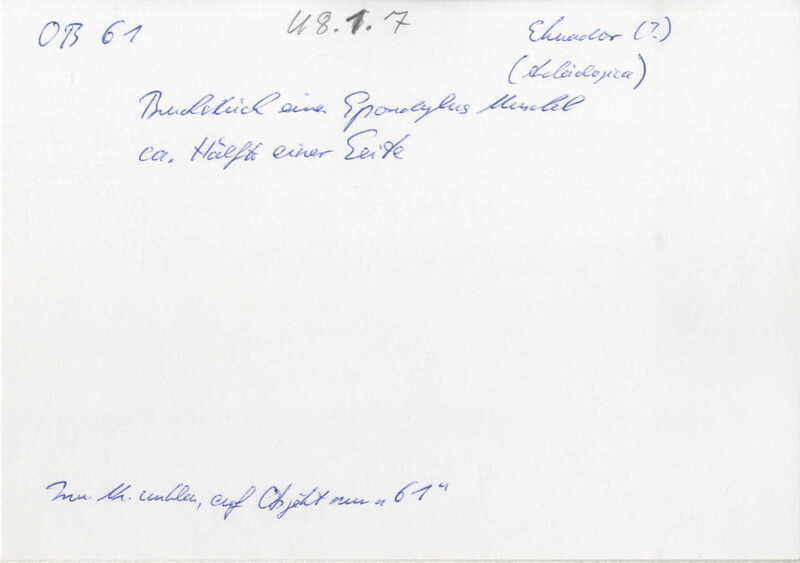 OB 61
48.1.7
Ekuador (?)
(Archäologica)
Bruchstück einer Spondylus Muschel
ca. Hälfte einer Seite
Inv. Nr. unklar, auf Objekt nur "61"